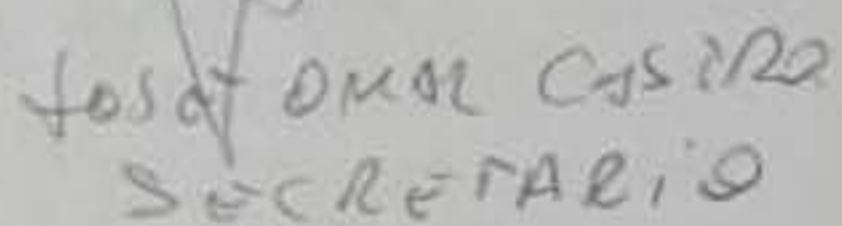 José OMAR CASTRO
SECRETARIO